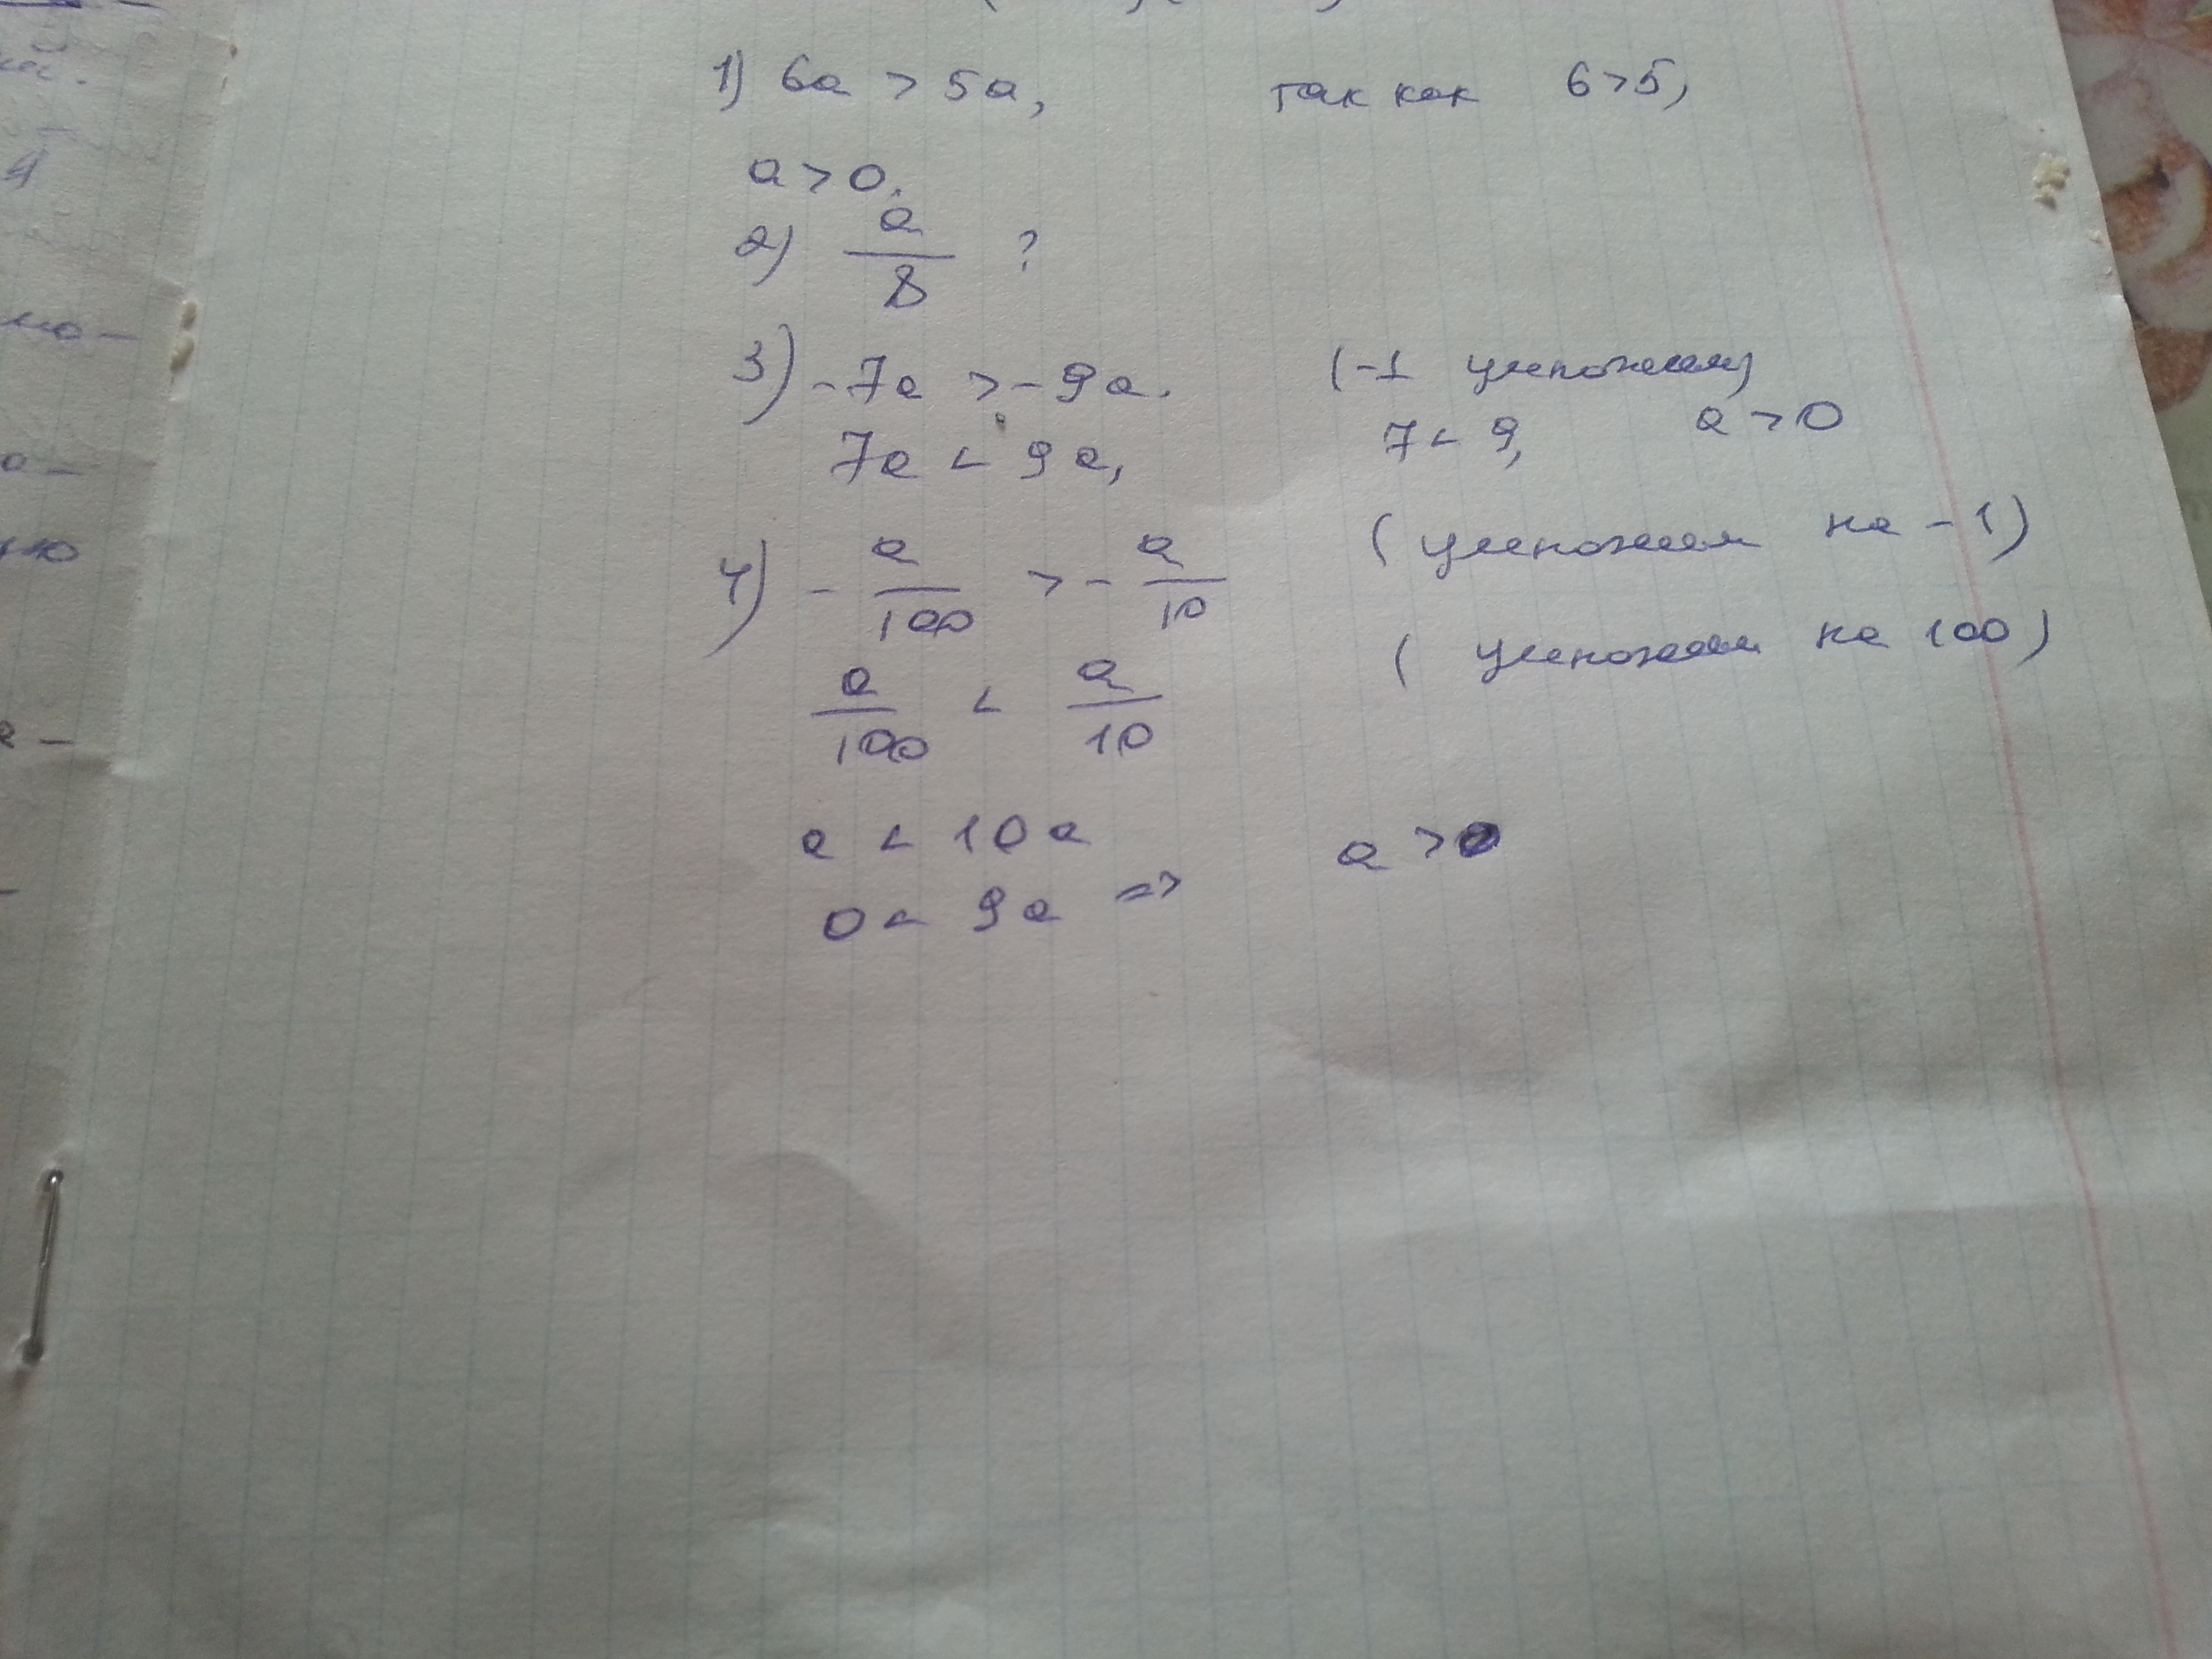 1) 6a > 5a, так как 6>5,
a>0.
2) a/8 ?
3) -7a > -9a. (-1 умножаем)
7a < 9a, 7 < 9, a>0
4) - a/100 > - a/10 (умножаем на -1)
a/100 < a/10 (умножаем на 100)
a < 10a a >0
0 < 9a =>